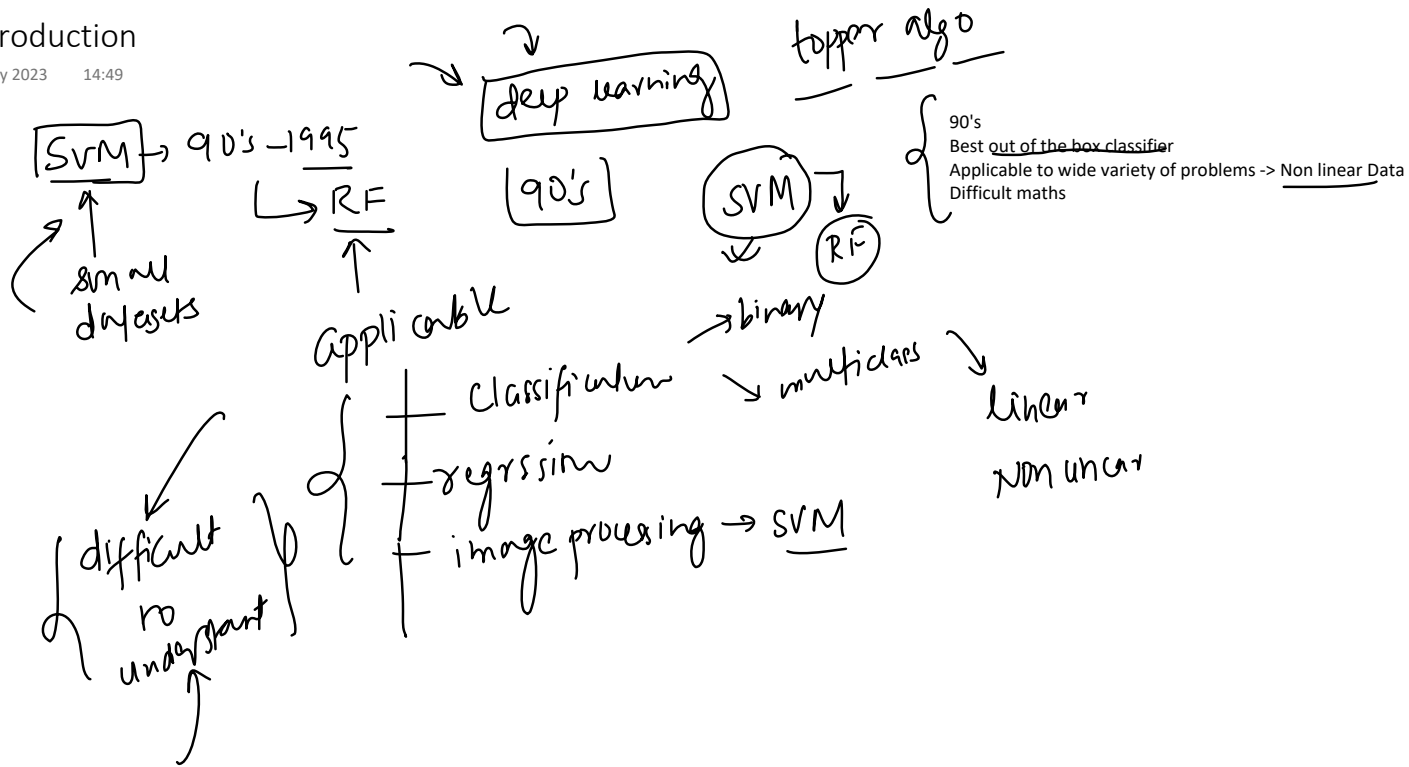 roduction
y 2023 14:49
topper algo
deep learning
90's
Best out of the box classifier
Applicable to wide variety of problems -> Non linear Data
Difficult maths
SVM → 90's - 1995
RF
90's
SVM
RF
small
datasets
applicable
classification
binary
multiclass
linear
Non linear
regrssion
image processing → SVM
difficult
to
understant